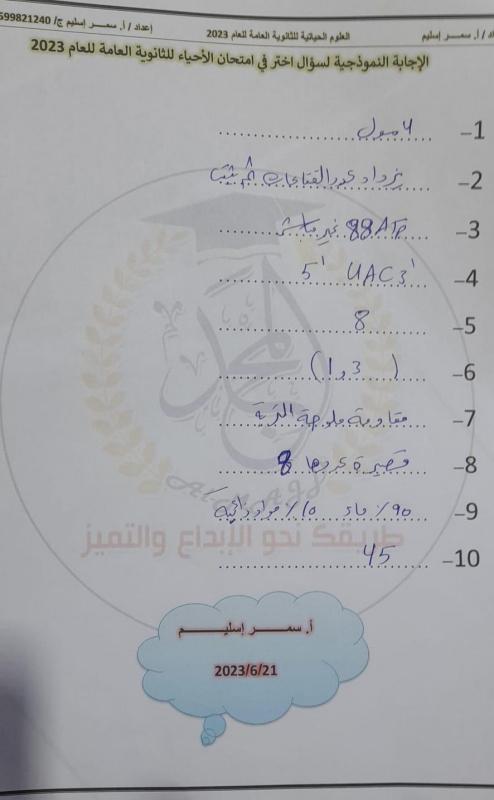 إعداد / أ. سمـــر إسليم ج/ 599821240
العلوم الحياتية للثانوية العامة للعام 2023
اد / أ. سمـــر إسليم
الإجابة النموذجية لسؤال اختر في امتحان الأحياء للثانوية العامة للعام 2023
1- 4 مول
2- يزداد عدد القناعات
3- 88ATP غير مباشر
4- 5' UAC 3'
5- 8
6- ( 1 و 3 )
7- مقاومة ملوحة التربة
8- قصيرة عددها 8
9- 90٪ ماء 10٪ مواد ذائبة
10- 45
طريقك نحو الإبداع والتميز
أ. سمـــر إسليـــم
2023/6/21